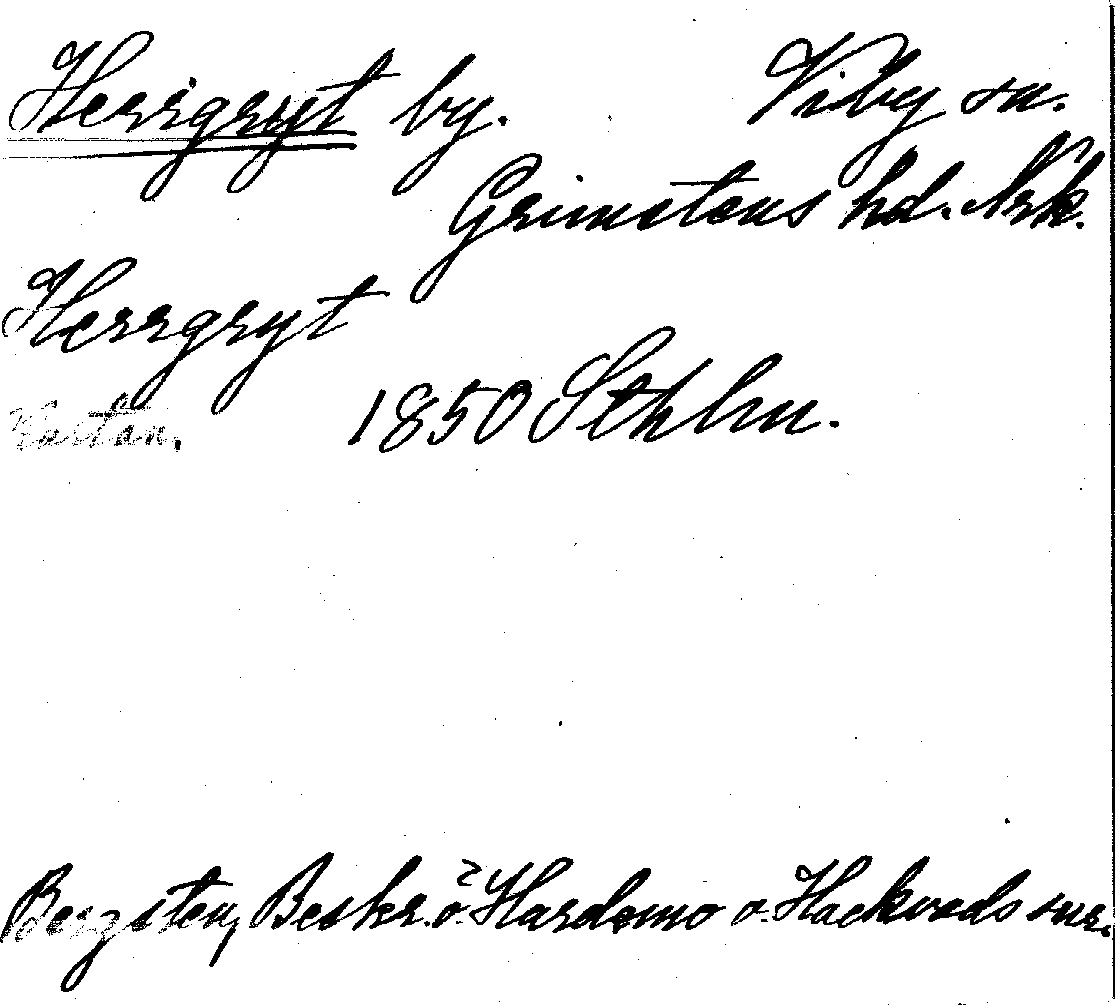 Herrgryt by. Viby sn.
Grimstens hd. Nrk.
Herrgryt
Kartan. 1850 Sthlm.
Bergsten, Beskr. ö. Hardemo o. Hackvads snr.